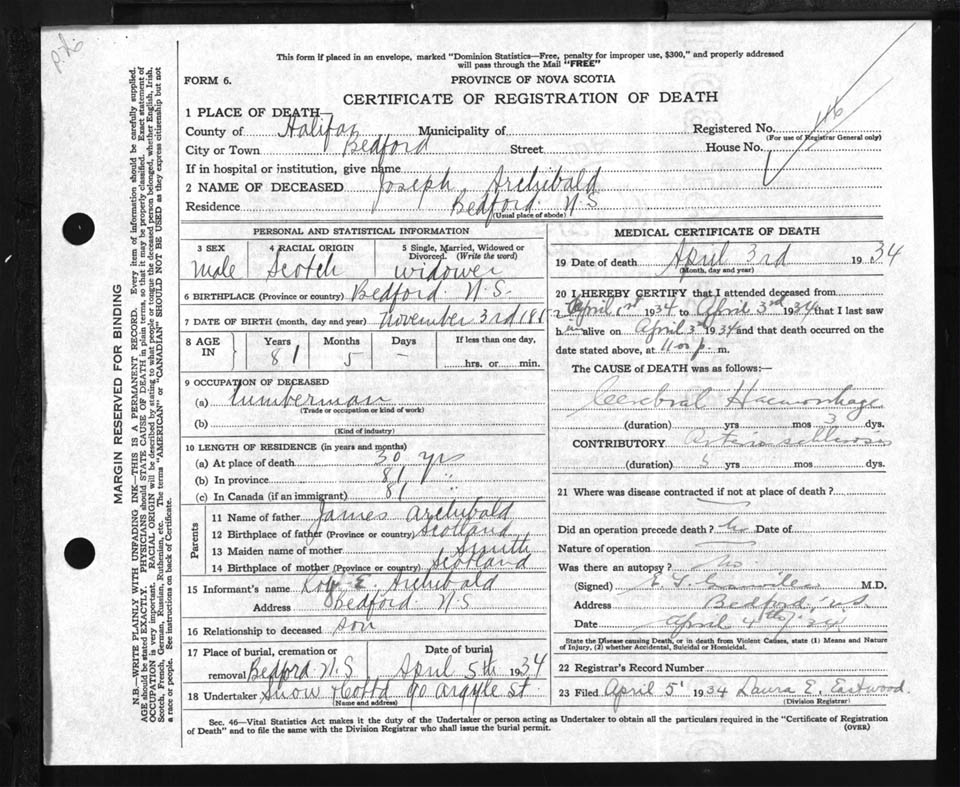 This form if placed in an envelope, marked "Dominion Statistics—Free, penalty for improper use, $300," and properly addressed
will pass through the Mail "FREE"
FORM 6.
PROVINCE OF NOVA SCOTIA
CERTIFICATE OF REGISTRATION OF DEATH
MARGIN RESERVED FOR BINDING
N.B.—WRITE PLAINLY WITH UNFADING INK—THIS IS A PERMANENT RECORD. Every item of information should be carefully supplied.
AGE should be stated EXACTLY. PHYSICIANS should STATE CAUSE OF DEATH in plain terms, so that it may be properly classified. Exact statement of
OCCUPATION is very important. RACIAL ORIGIN will be described by stating to what people or tongue the deceased person belonged, whether English, Irish,
Scotch, French, German, Russian, Ruthenian, etc. The terms "AMERICAN" or "CANADIAN" SHOULD NOT BE USED as they express citizenship but not
a race or people. See instructions on back of Certificate.
1 PLACE OF DEATH
County of Halifax Municipality of Registered No.
(For use of Registrar General only)
City or Town Bedford Street House No.
If in hospital or institution, give name
2 NAME OF DECEASED Joseph Archibald
Residence Bedford N.S
(Usual place of abode)
PERSONAL AND STATISTICAL INFORMATION
3 SEX 4 RACIAL ORIGIN 5 Single, Married, Widowed or
Divorced. (Write the word)
Male Scotch widower
6 BIRTHPLACE (Province or country) Bedford N.S.
7 DATE OF BIRTH (month, day and year) November 3rd
8 AGE IN Years Months Days If less than one day,
81 5 – hrs. or min.
9 OCCUPATION OF DECEASED
(a) Lumberman
(Trade or occupation or kind of work)
(b)
(Kind of industry)
10 LENGTH OF RESIDENCE (in years and months)
(a) At place of death 30 yrs
(b) In province 81 "
(c) In Canada (if an immigrant) 81 "
Parents
11 Name of father James Archibald
12 Birthplace of father (Province or country) Scotland
13 Maiden name of mother Smith
14 Birthplace of mother (Province or country) Scotland
15 Informant's name E. Archibald
Address Bedford N.S
16 Relationship to deceased son
17 Place of burial, cremation or removal Bedford N.S Date of burial April 5th 1934
18 Undertaker Snow & Co Ltd 90 Argyle St.
(Name and address)
MEDICAL CERTIFICATE OF DEATH
19 Date of death April 3rd 1934
(Month, day and year)
20 I HEREBY CERTIFY that I attended deceased from
April 1st 1934 to April 3rd 1934 that I last saw
him alive on April 3rd 1934 and that death occurred on the
date stated above, at 11 p. m.
The CAUSE of DEATH was as follows:—
Cerebral Haemorrhage
(duration) yrs mos 3 dys.
CONTRIBUTORY Arterio sclerosis
(duration) 5 yrs mos dys.
21 Where was disease contracted if not at place of death?
Did an operation precede death? No Date of
Nature of operation
Was there an autopsy? No.
(Signed) M.D.
Address Bedford, N.S.
Date April 4th/34
State the Disease causing Death, or in death from Violent Causes, state (1) Means and Nature
of Injury, (2) whether Accidental, Suicidal or Homicidal.
22 Registrar's Record Number
23 Filed April 5 1934 Laura E. Eastwood.
(Division Registrar)
Sec. 46—Vital Statistics Act makes it the duty of the Undertaker or person acting as Undertaker to obtain all the particulars required in the "Certificate of Registration
of Death" and to file the same with the Division Registrar who shall issue the burial permit.
(OVER)